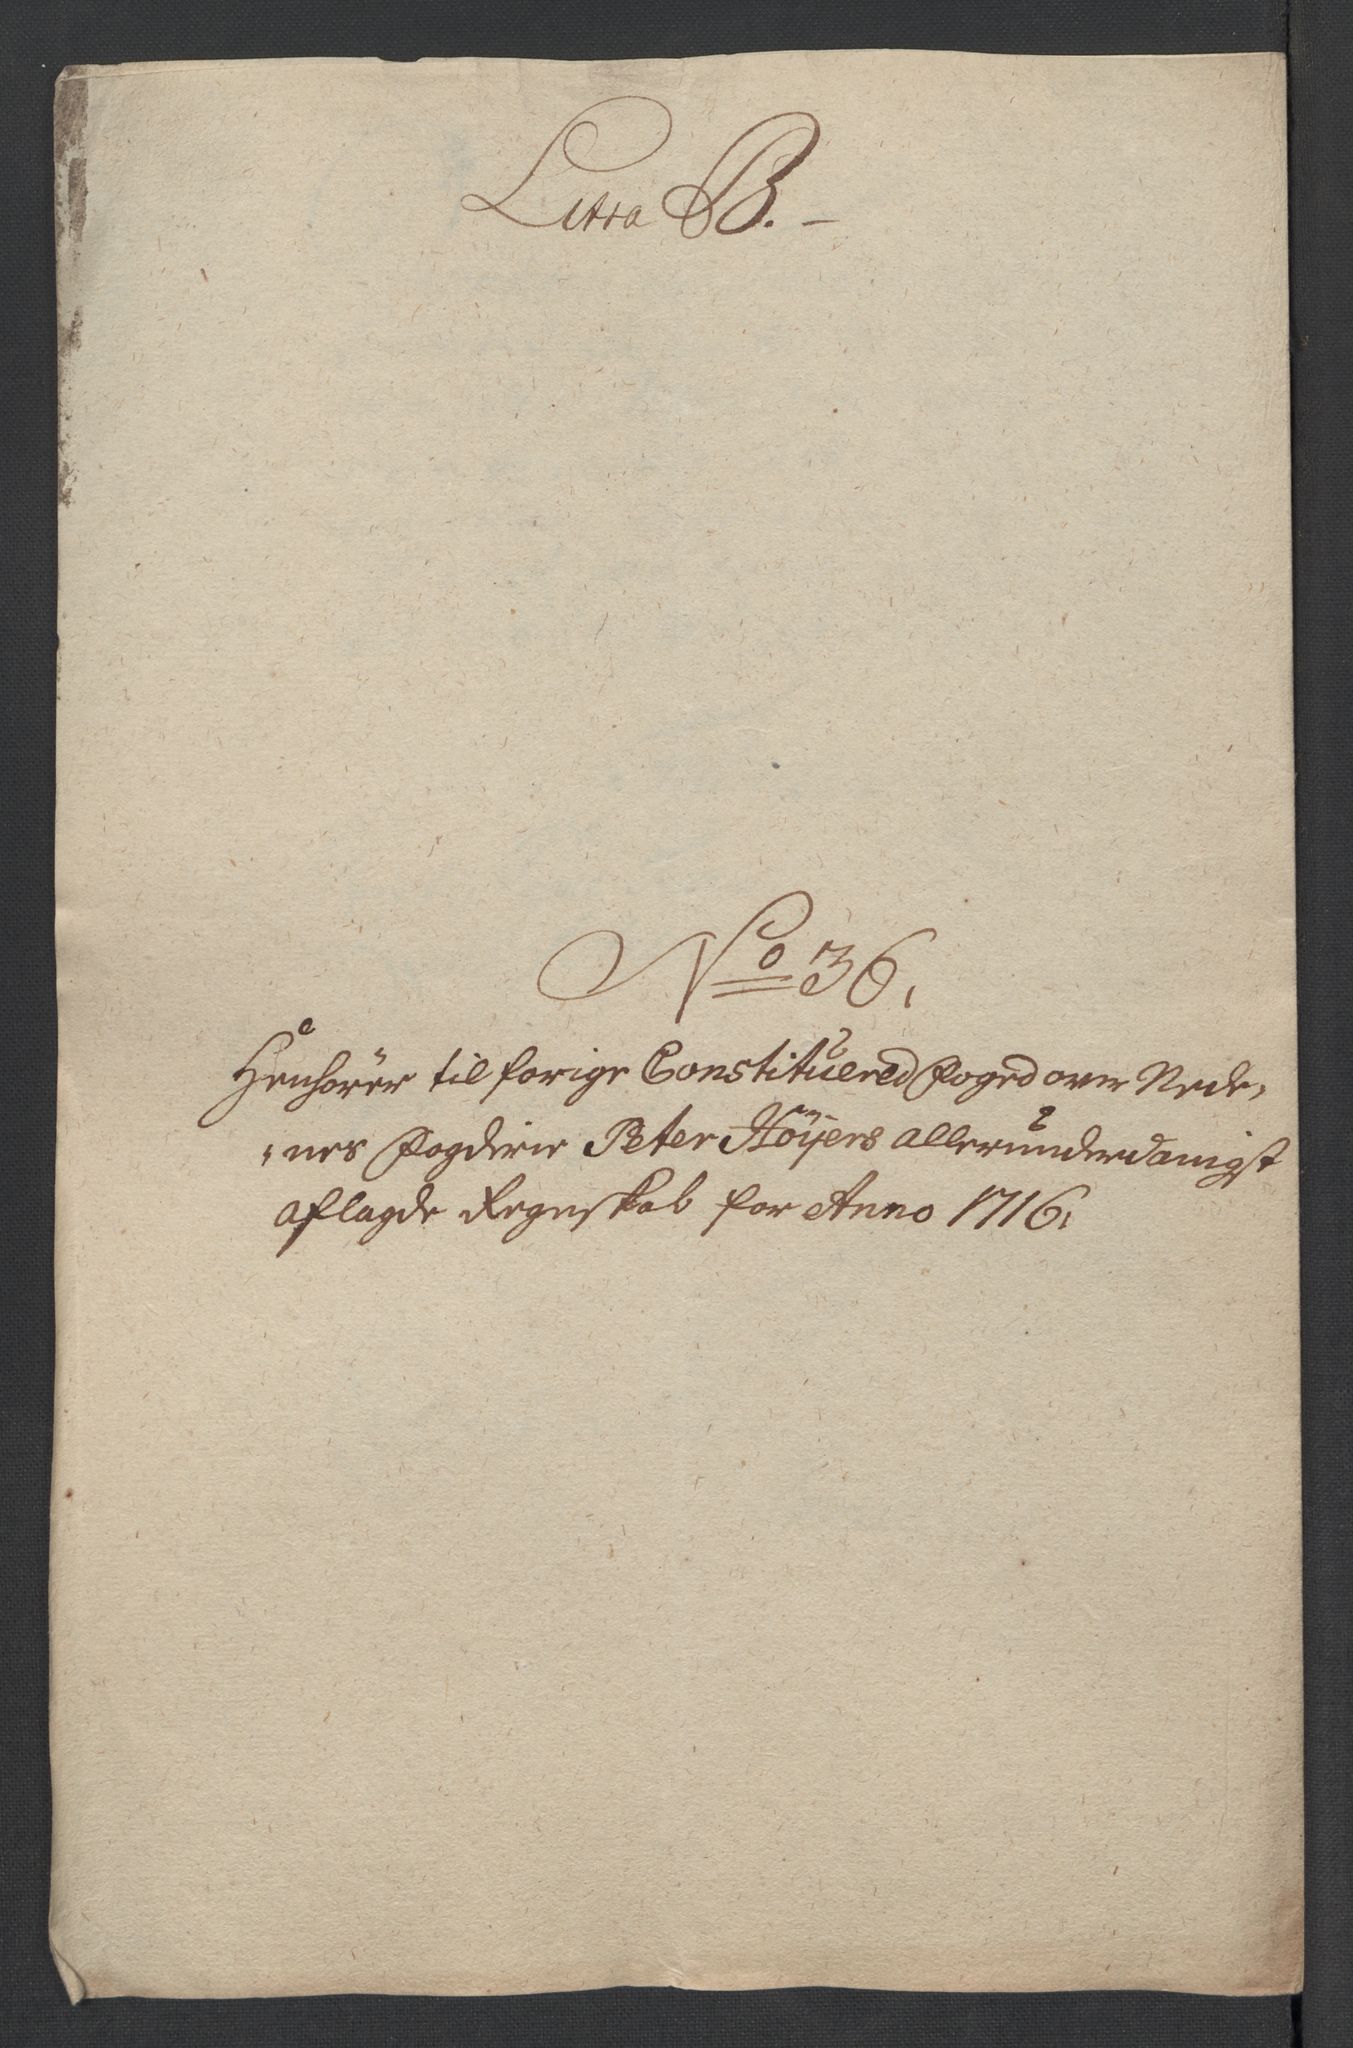 Litra B. –
No 36.
Henhörer til forige Constituered Foged over Nede,
,nes Fogderie Peter Höÿers allerunderdanigst
aflagde Regnskab for Anno 1716.